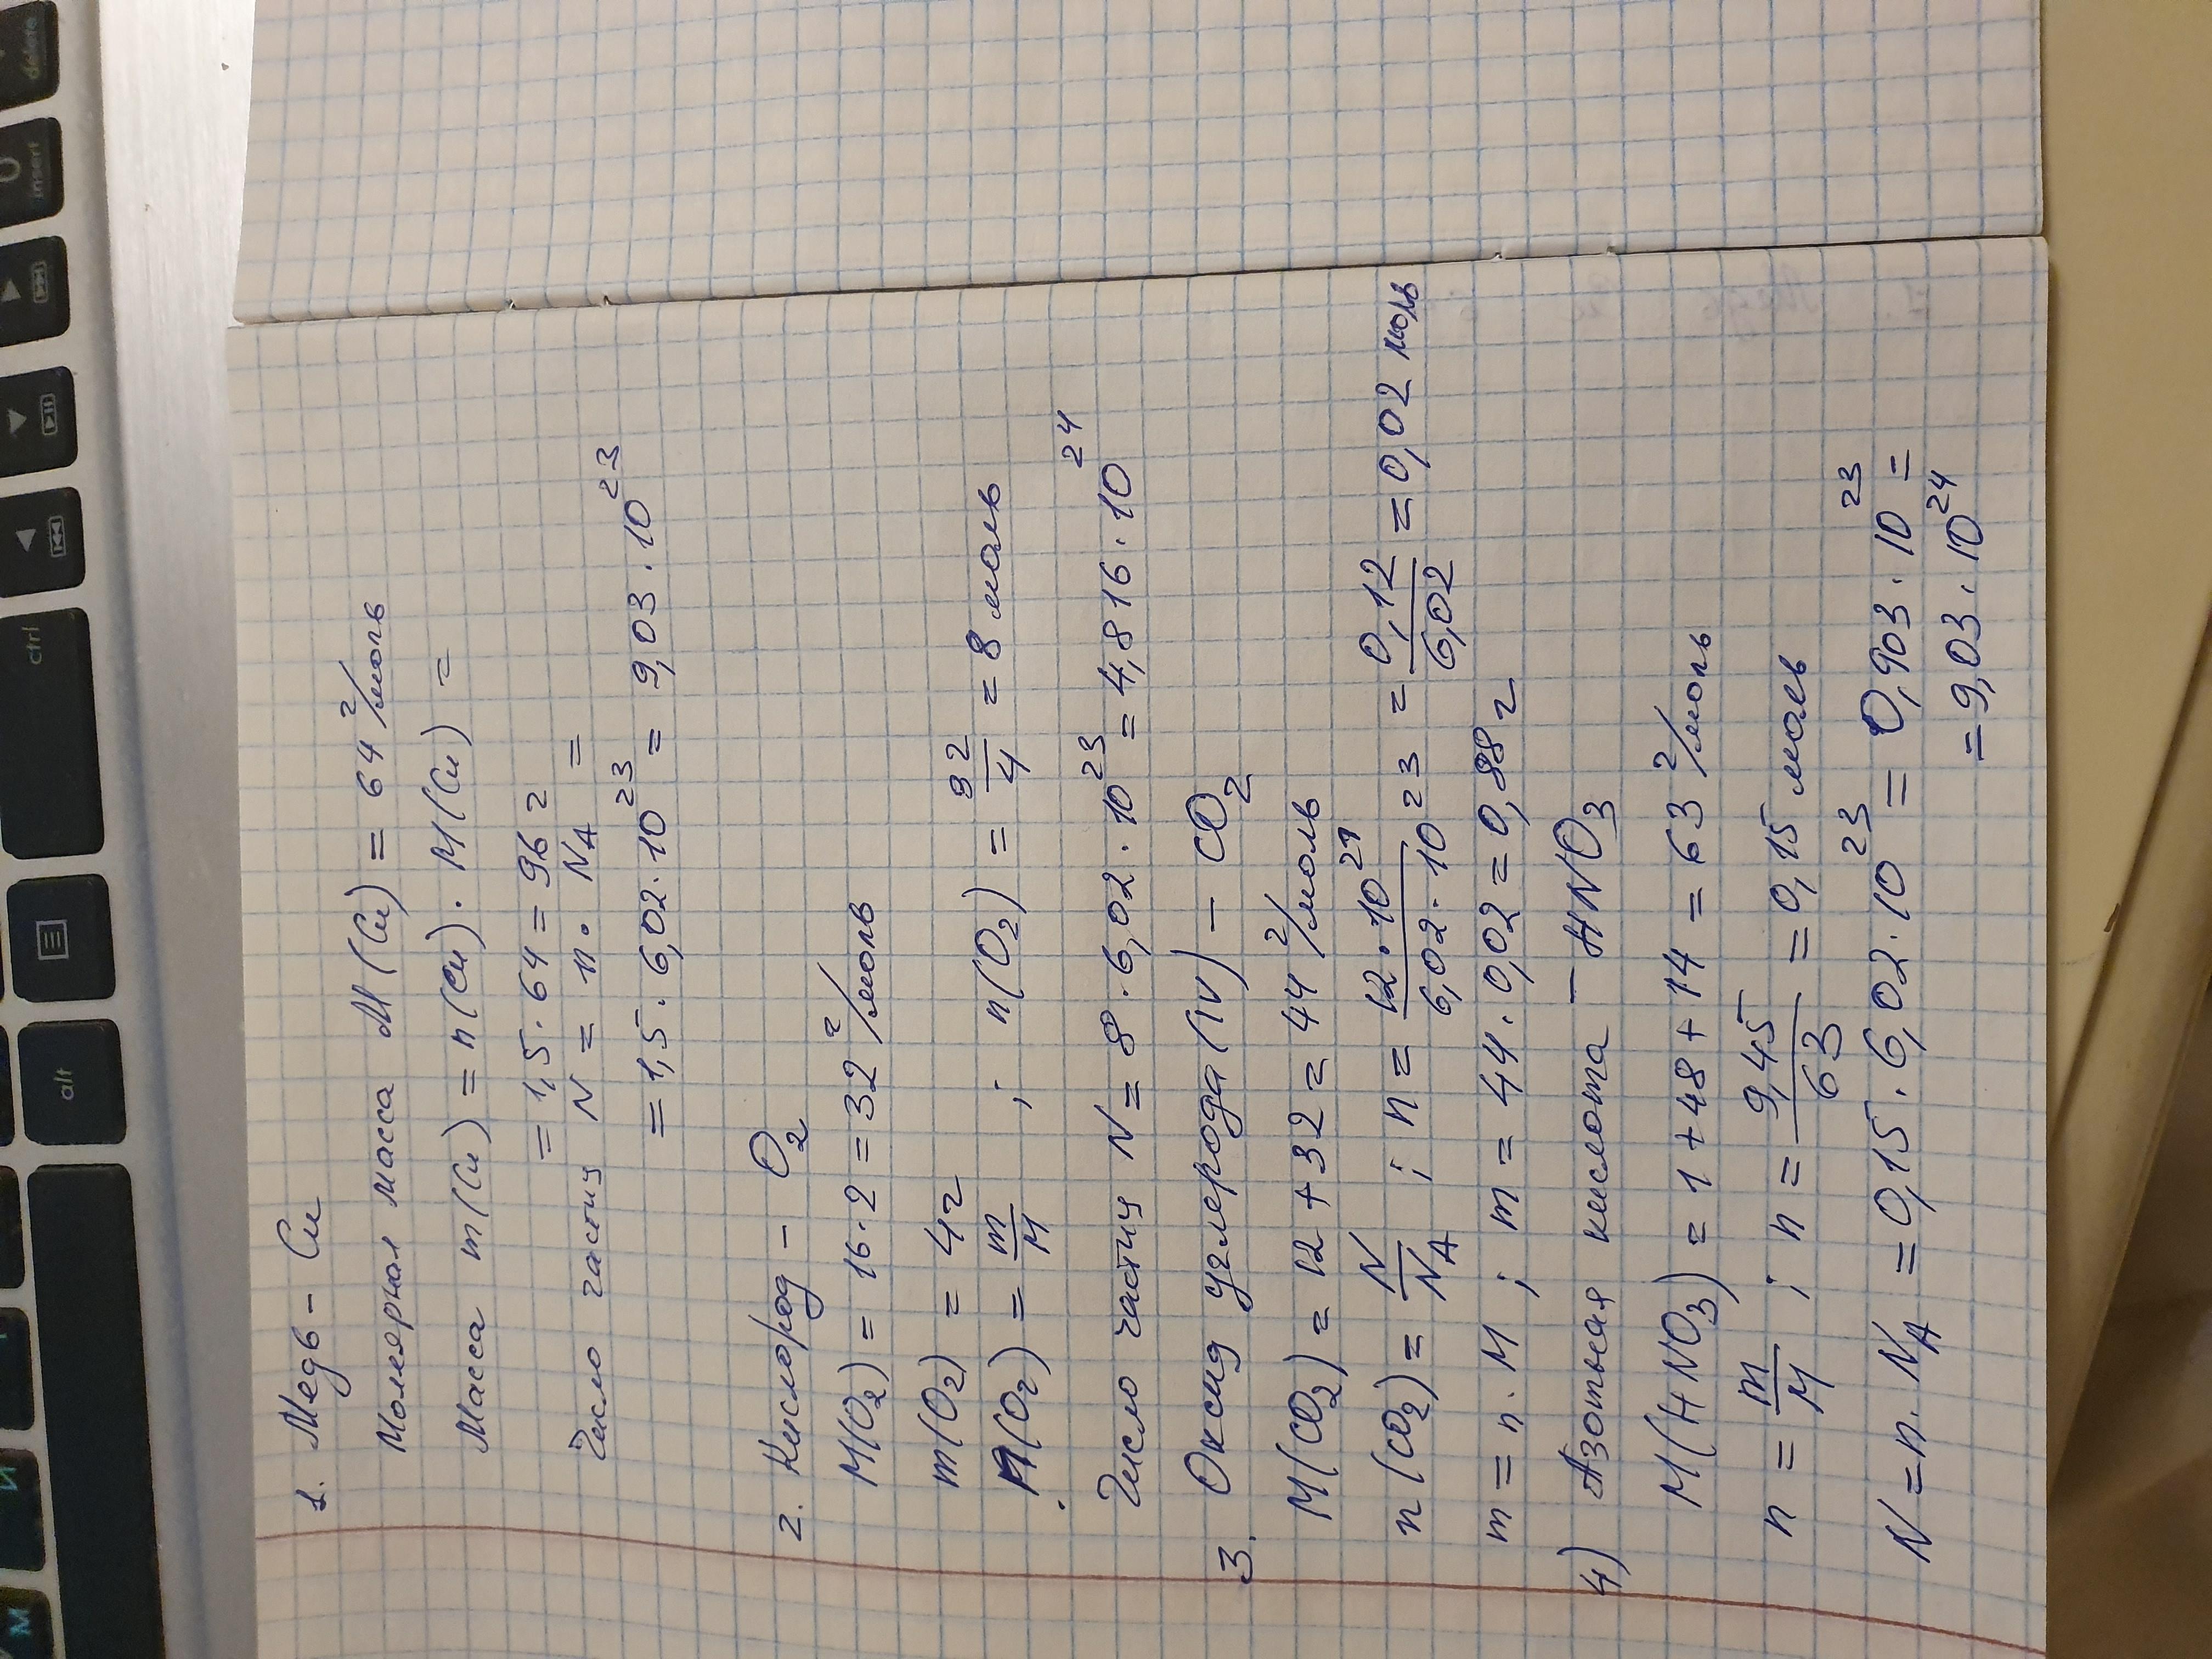 1. Медь - Cu
Молярная масса M(Cu) = 64 г/моль
Масса m(Cu) = n(Cu) · M(Cu) =
= 1,5 · 64 = 96 г
Число частиц N = n · N_A =
= 1,5 · 6,02 · 10^23 = 9,03 · 10^23
2. Кислород - O2
M(O2) = 16 · 2 = 32 г/моль
m(O2) = 4 г
n(O2) = m/M ; n(O2) = 32/4 = 8 моль
Число частиц N = 8 · 6,02 · 10^23 = 4,816 · 10^24
3. Оксид углерода (IV) - CO2
M(CO2) = 12 + 32 = 44 г/моль
n(CO2) = N/N_A ; n = 12 · 10^21/6,02 · 10^23 = 0,12/6,02 = 0,02 моль
m = n · M ; m = 44 · 0,02 = 0,88 г
4) Азотная кислота - HNO3
M(HNO3) = 1 + 48 + 14 = 63 г/моль
n = m/M ; n = 9,45/63 = 0,15 моль
N = n · N_A = 0,15 · 6,02 · 10^23 = 0,903 · 10^23 =
= 9,03 · 10^24
delete
insert
ctrl
alt
И
М